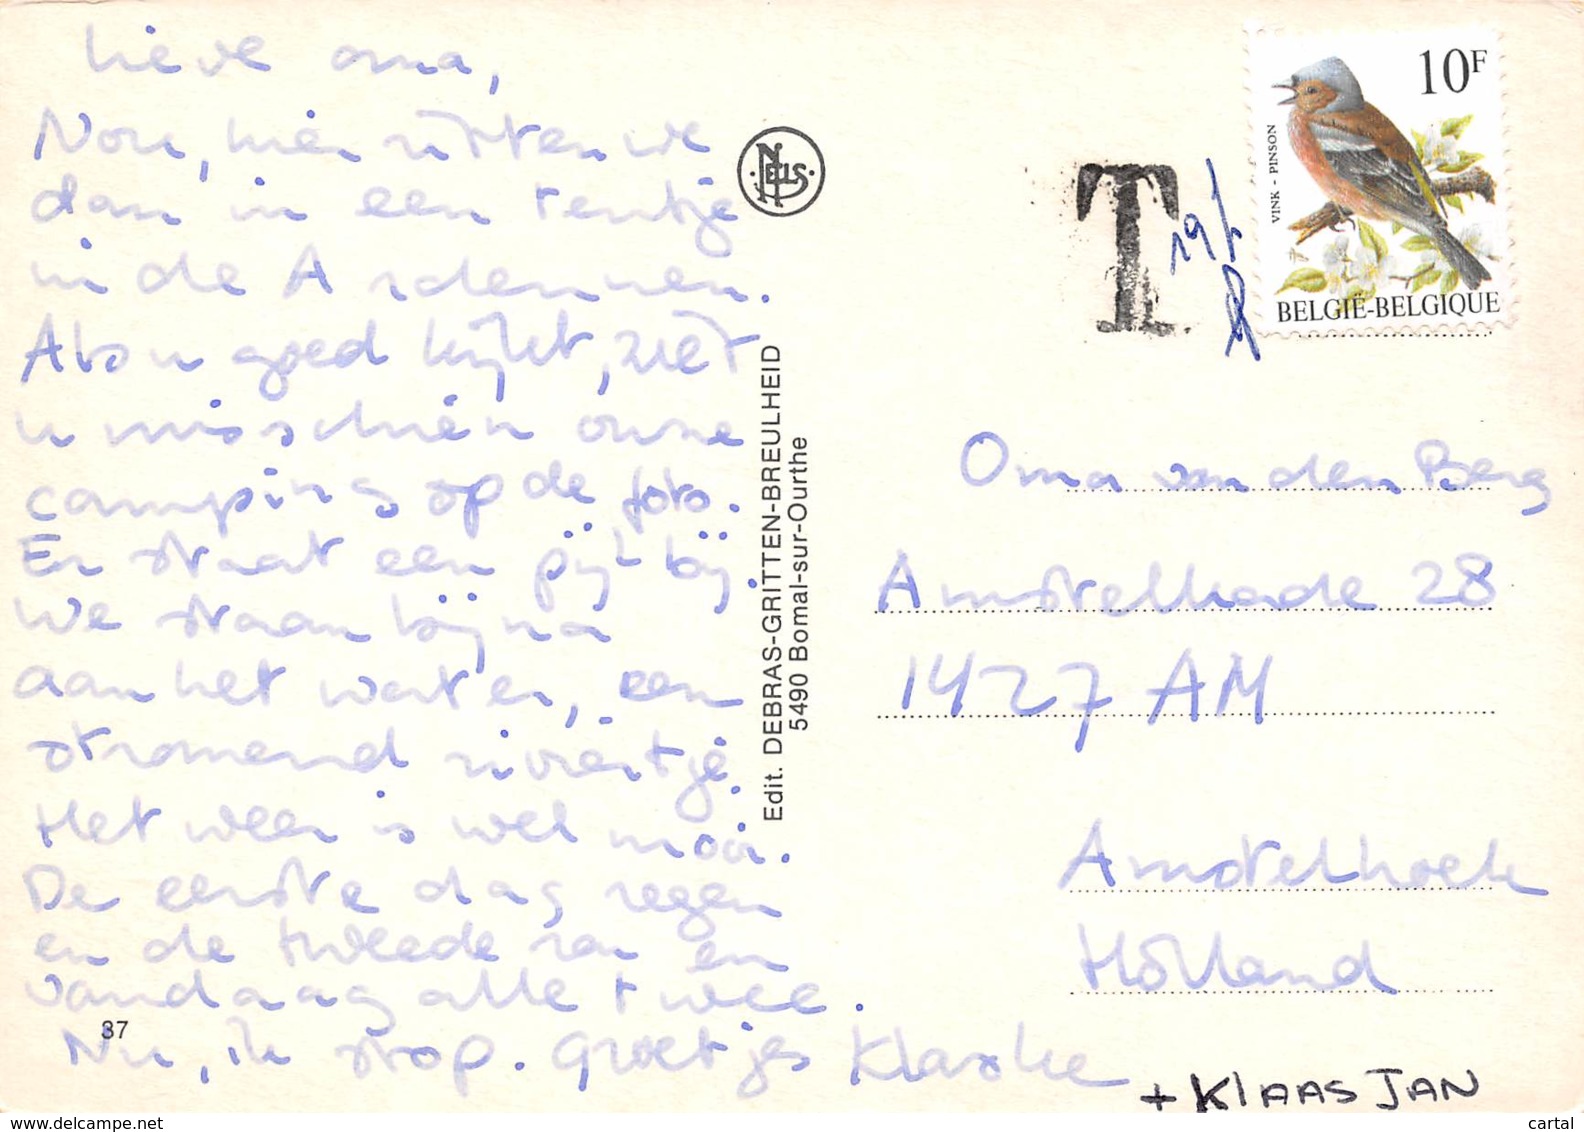 lieve oma,
Nou, hier zitten we
dan in een tentje
in de Ardennen.
Als u goed kijkt, ziet
u misschien onze
camping op de foto.
Er staat een pijl bij.
We staan bijna
aan het water, een
stromend riviertje.
Het weer is wel mooi.
De eerste dag regen
en de tweede zon en
vandaag alle twee.
Nu, ik stop. Groetjes Klaske
+ KLAAS JAN
37
NELLS
Edit. DEBRAS-GRITTEN-BREULHEID
5490 Bomal-sur-Ourthe
T
10F
VINK - PINSON
BELGIË-BELGIQUE
Oma van den Berg
Amstelkade 28
1427 AM
Amstelhoek
Holland
www.delcampe.net
cartal